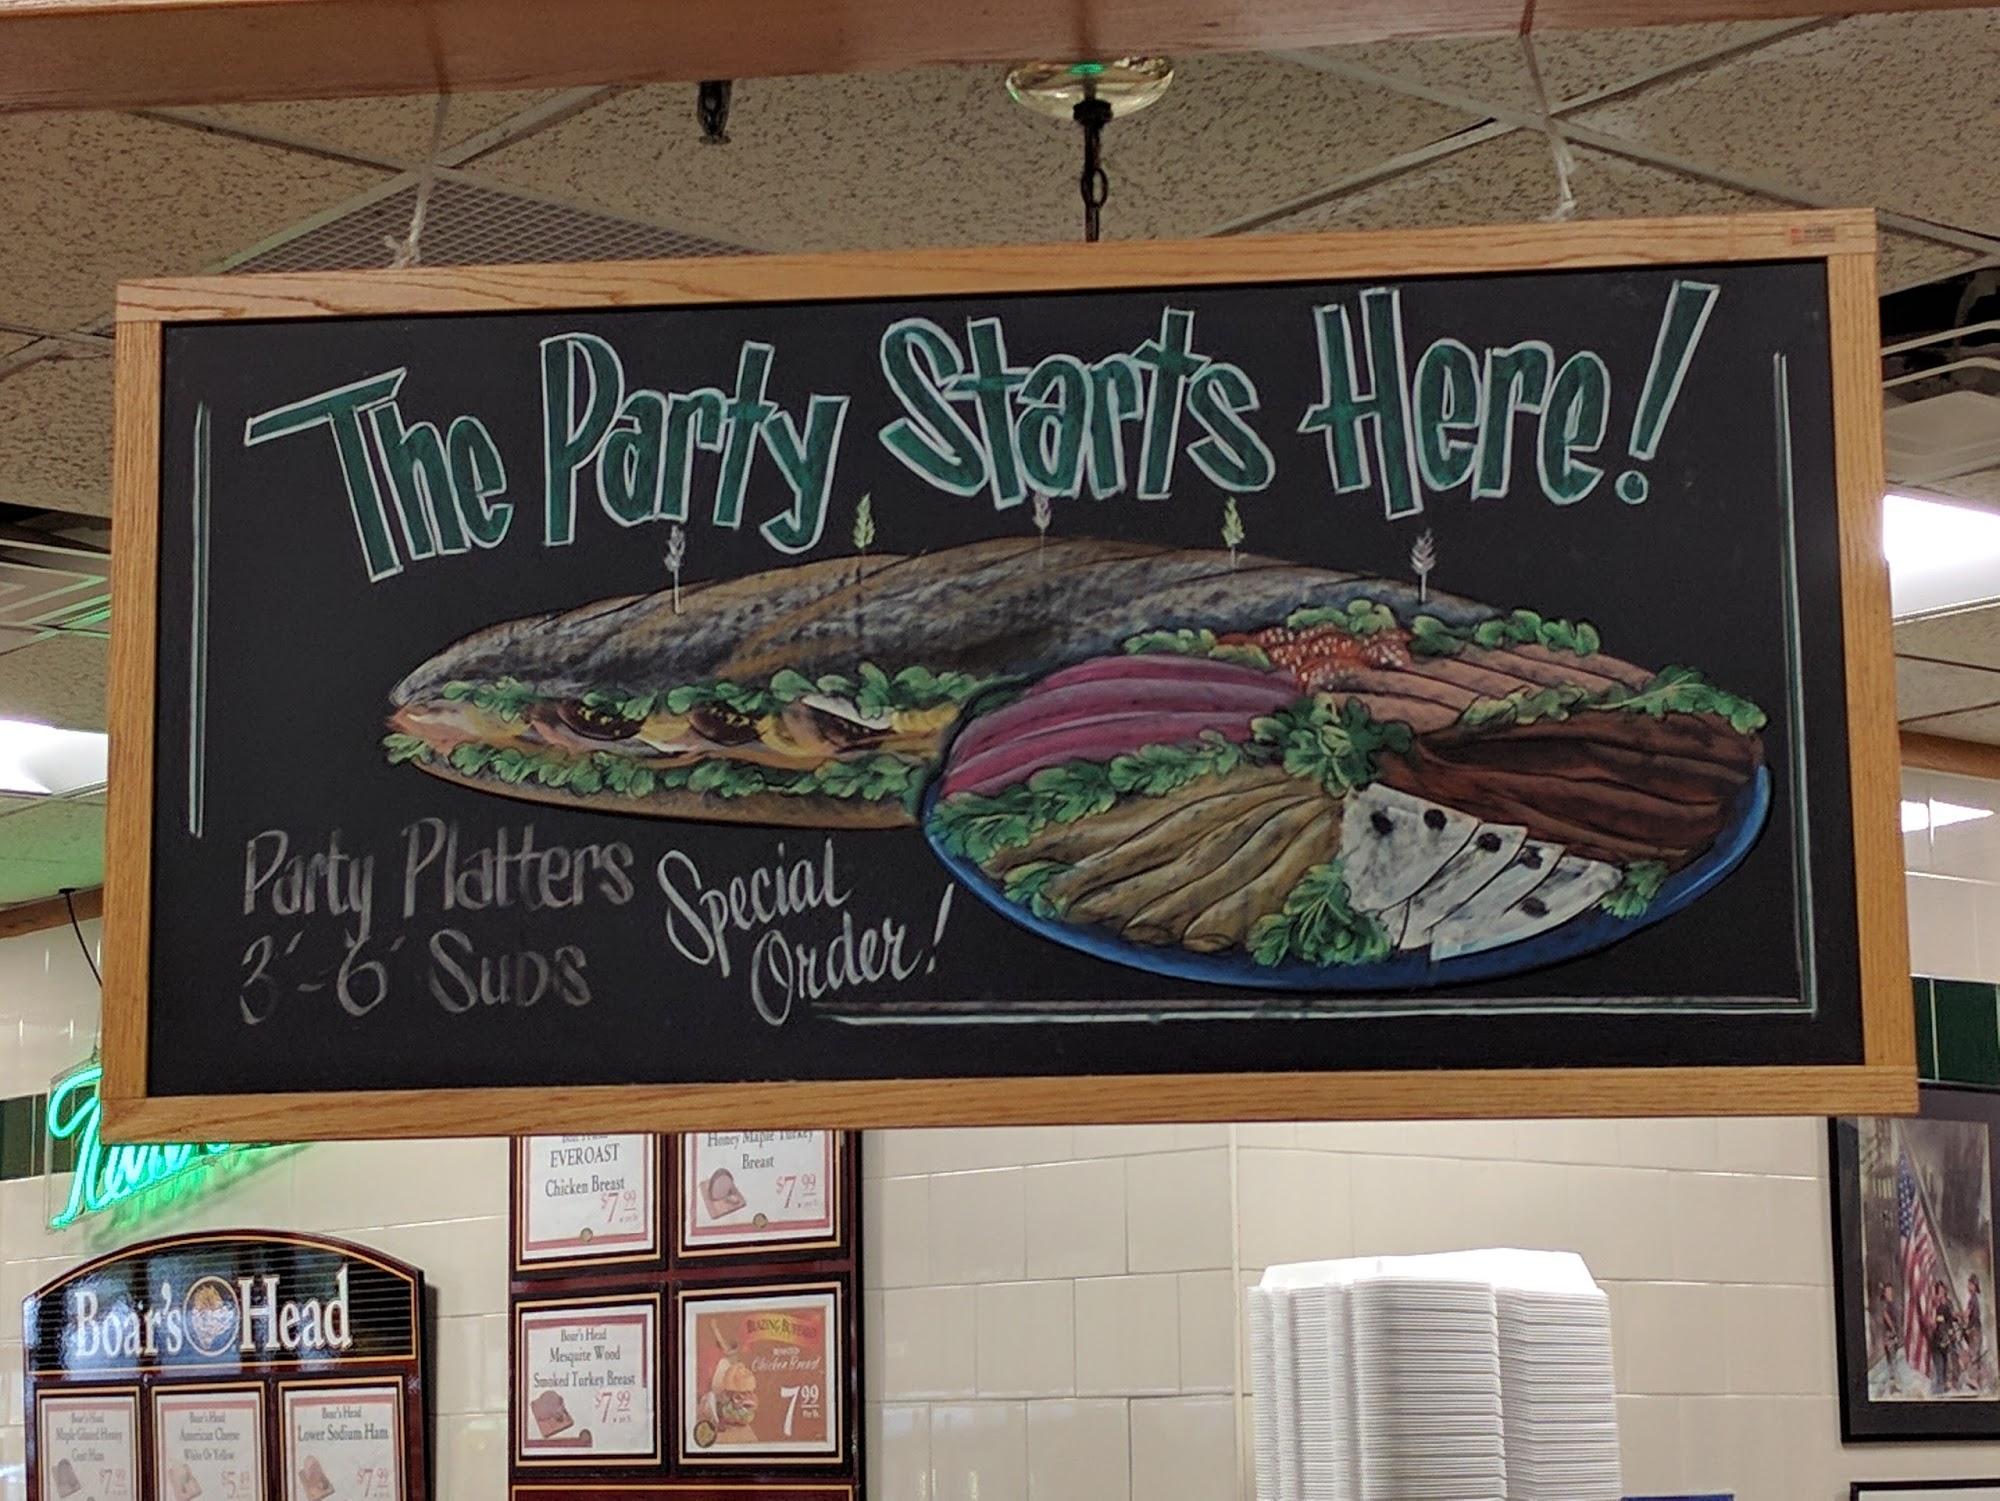 The Party Starts Here!
Party Platters
3' - 6' Subs
Special
Order!
EVEROAST
Chicken Breast
$7.99
Honey Maple Turkey
Breast
$7.99
Boar's Head
Boar's Head
Mesquite Wood
Smoked Turkey Breast
$7.99
BLAZING BUFFALO
Chicken Breast
7.99
Boar's Head
Maple Glazed Honey
Coat Ham
$7.99
Boar's Head
American Cheese
White Or Yellow
$5.49
Boar's Head
Lower Sodium Ham
$7.99